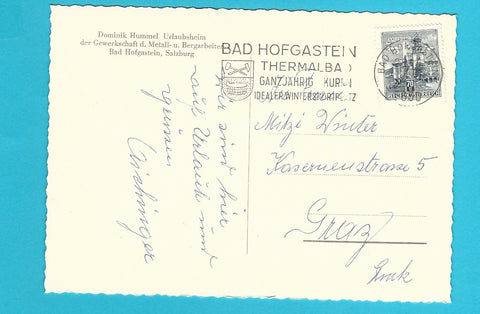 Dominik Hummel Urlaubsheim
der Gewerkschaft d. Metall- u. Bergarbeiter
Bad Hofgastein, Salzburg
Wir sind hier
auf Urlaub und
grüssen
Aichinger
BAD HOFGASTEIN
THERMALBAD
GANZJÄHRIG KUR
IDEALER WINTERSPORTPLATZ
BAD HOFGASTEIN
Mitzi Winter
Kasernenstrasse 5
Graz